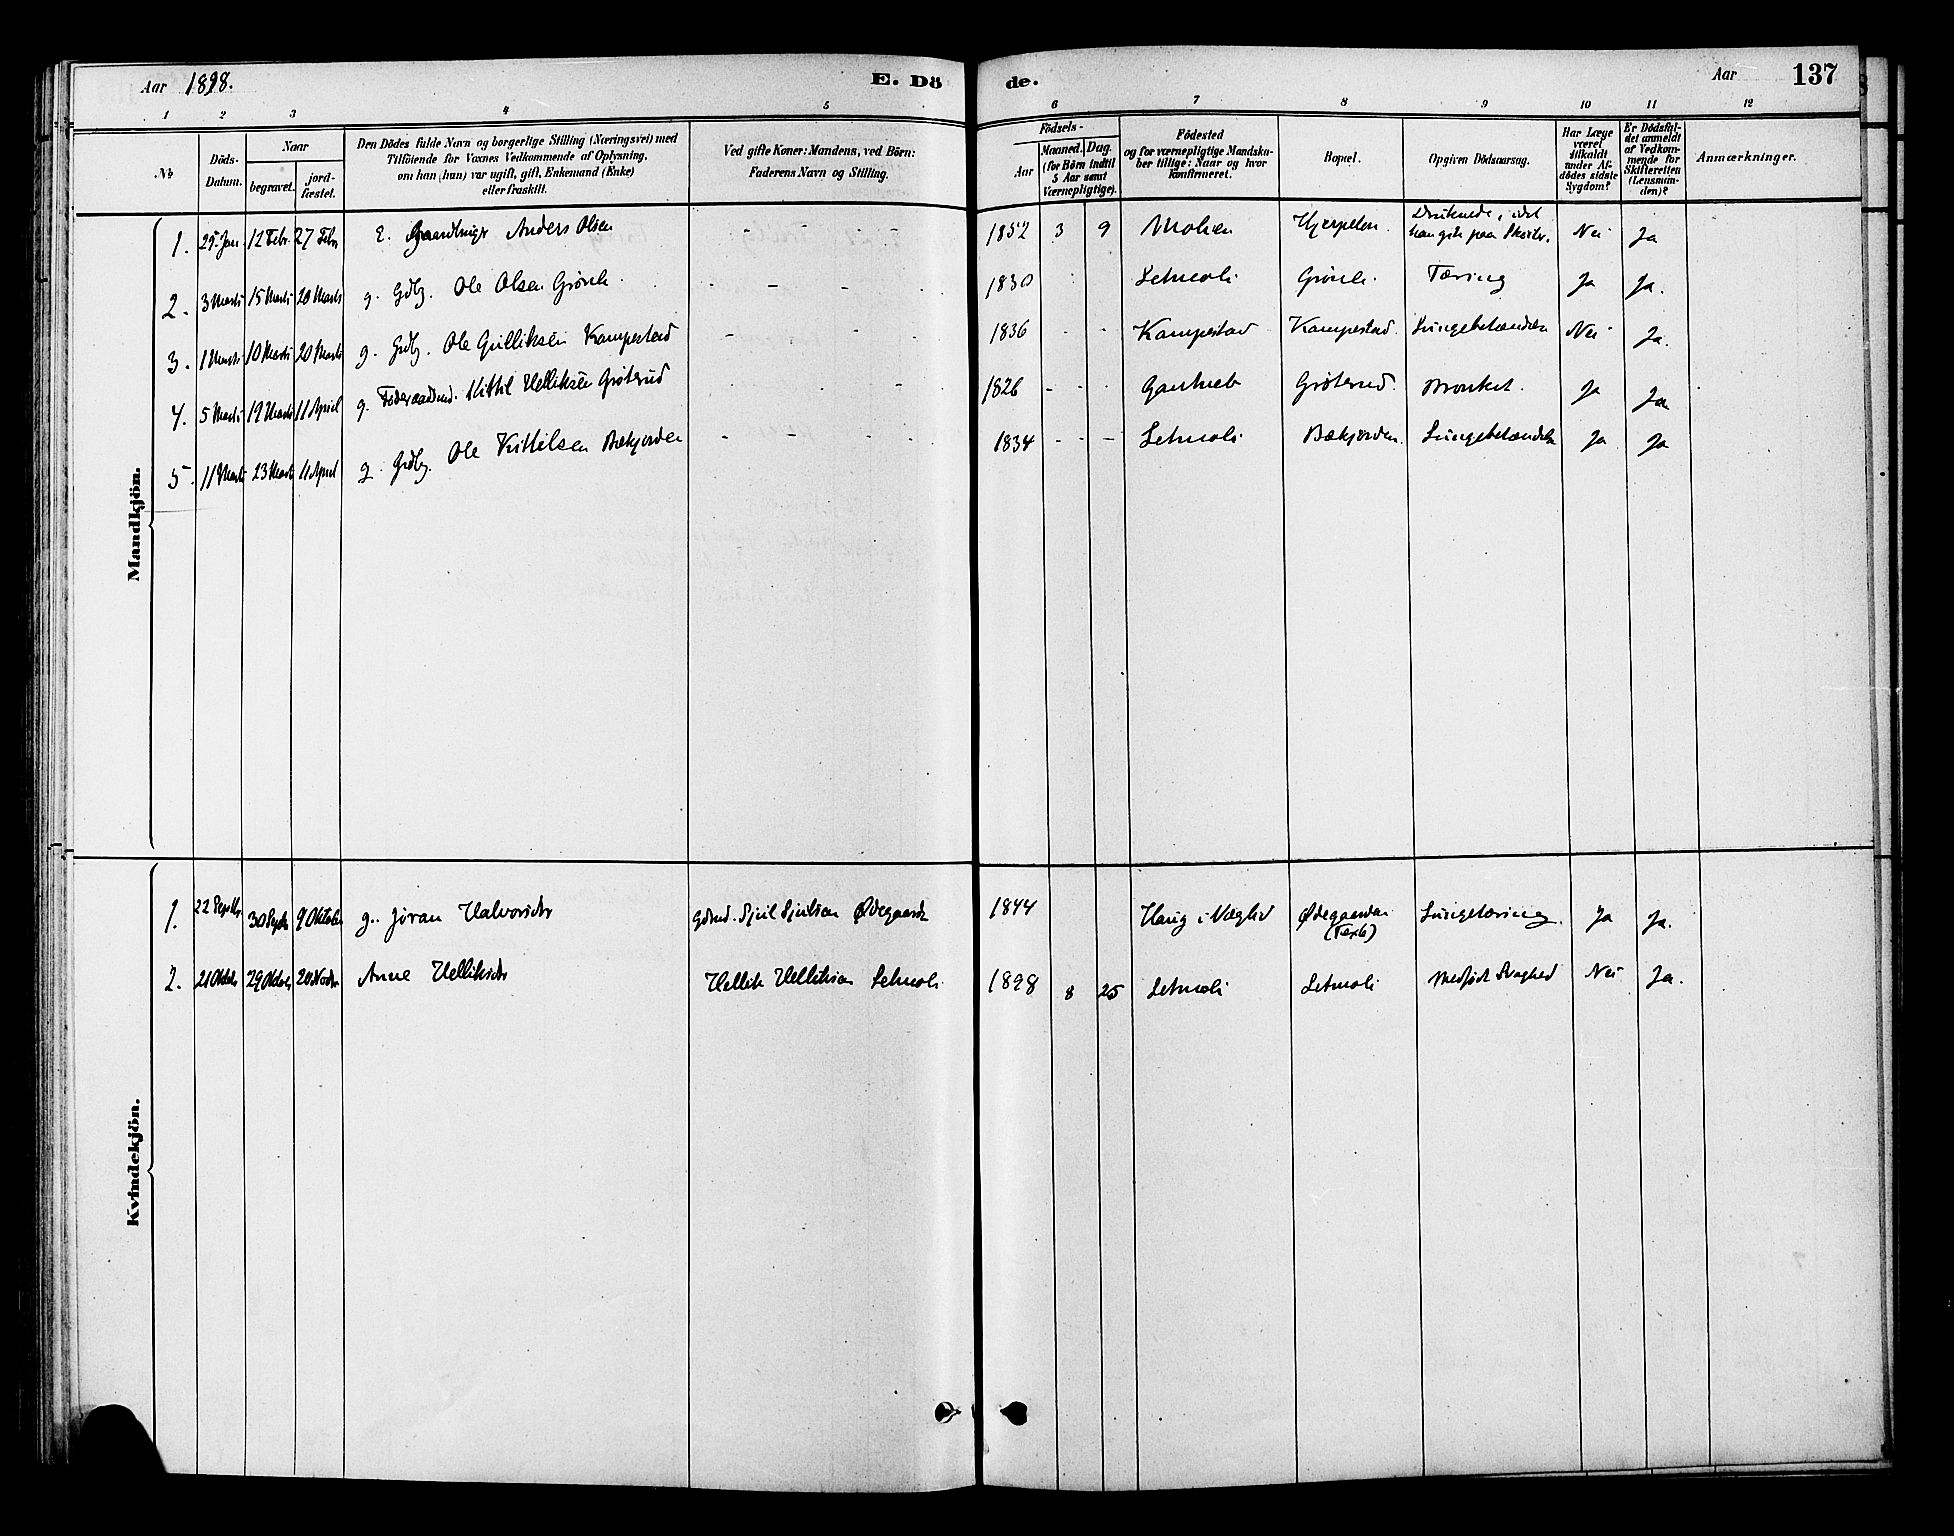 Aar 1898.
E. Dö
de.
Aar
137
1 2 3 4 5 6 7 8 9 10 11 12
No
Döds-
Datum.
Naar
begravet.
jord-
fæstet.
Den Dödes fulde Navn og borgerlige Stilling (Næringsvei) med
Tilföiende for Voxnes Vedkommende af Oplysning,
om han (hun) var ugift, gift, Enkemand (Enke)
eller fraskilt.
Ved gifte Koner: Mandens, ved Börn:
Faderens Navn og Stilling.
Födsels-
Aar
Maaned. Dag.
(for Börn indtil
5 Aar samt
Værnepligtige).
Födested
og for værnepligtige Mandska-
ber tillige: Naar og hvor
konfirmeret.
Bopæl.
Opgiven Dödsaarsag.
Har Læge
været
tilkaldt
under Af-
dödes sidste
Sygdom?
Er Dödsfal-
det anmeldt
af Vedkom-
mende for
Skifteretten
(Lensman-
den)?
Anmærkninger.
Mandkjön.
1. 25 Jan 12 Febr. 27 Febr E. Anders Olsen - - - - - 1852 3 9 Moheen Nei Ja
2. 3 Marts 15 Marts 20 Marts g. Gdbg. Ole Olsen Grönli - - - - 1830 Setmoli Grönli. Tæring Ja Ja.
3. 1 Marts 10 Marts 20 Marts g. Gdbg. Ole Gulliksen Kampestad - - 1836 - - Kampestad Kampestad. Lungebetændelse Nei Ja.
4. 5 Marts 19 Marts 11 April g. Föderaadsmd. Kittil Helliksen Gröterud - - - 1826 - - - Gröterud. Bronkit. Ja Ja
5. 11 Marts 23 Marts 11 April g. Gdbg. Ole Kittilsen Bækjorden - - - - 1834 - - - Setmoli Bækjorden. Lungebetændelse Ja Ja
Kvindekjön.
1. 22 Septbr 30 Septbr 9 Oktober g. Jöran Halvorsdtr Gdbmd. Kjitil Kjitilsen Ödegaarden 1844 Haug i Vægliid Ødegaarden Lungetæring. Ja Ja.
2. 21 Oktbr 29 Oktbr 20 Novbr Anne Helliksdtr Hellik Helliksen Setmoli 1898 8 25 Setmoli Setmoli Medfödt Svaghed Nei Ja.